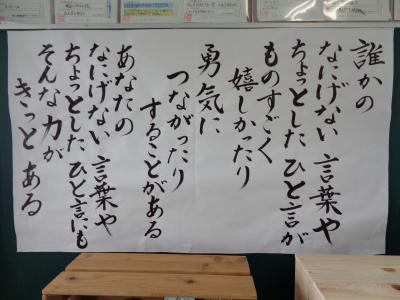 誰かの
なにげない言葉や
ちょっとしたひと言が
ものすごく
嬉しかったり
勇気に
つながったり
することがある
あなたの
なにげない言葉や
ちょっとしたひと言にも
そんな力が
きっとある